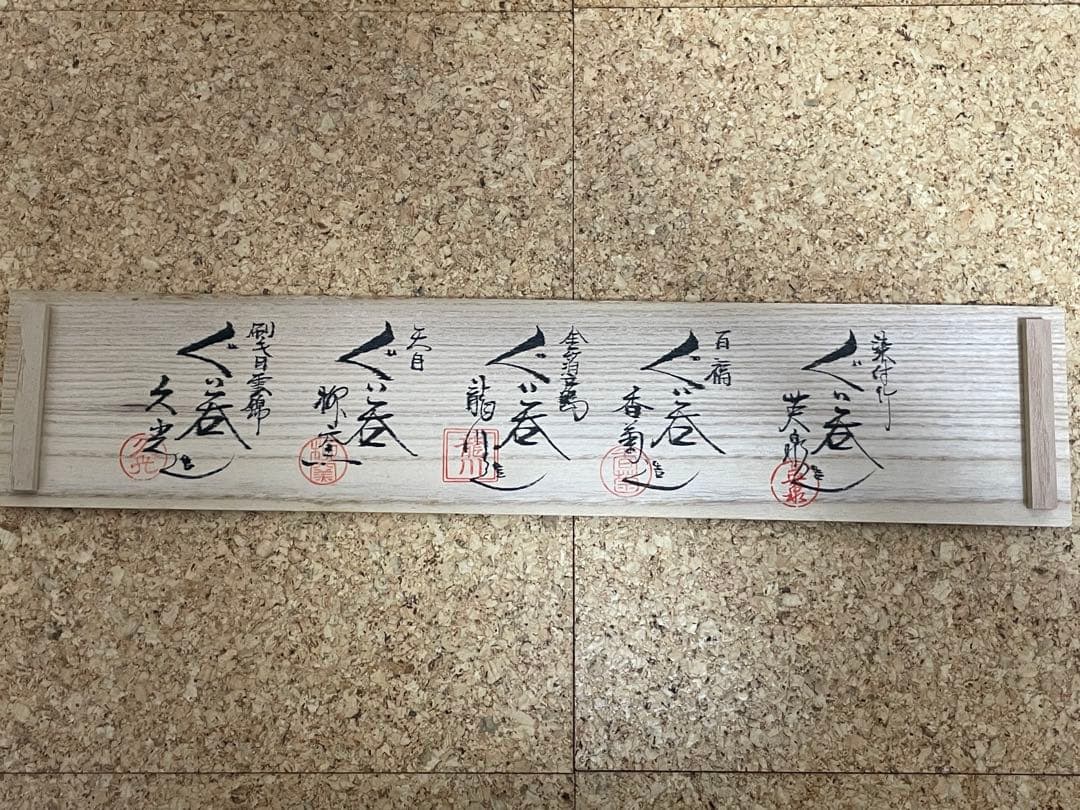 染付
ぐい呑
芙泉造
百福
ぐい呑
香菊造
金箔
ぐい呑
龍川造
天目
ぐい呑
柳造
刷毛目雲錦
ぐい呑
久光造